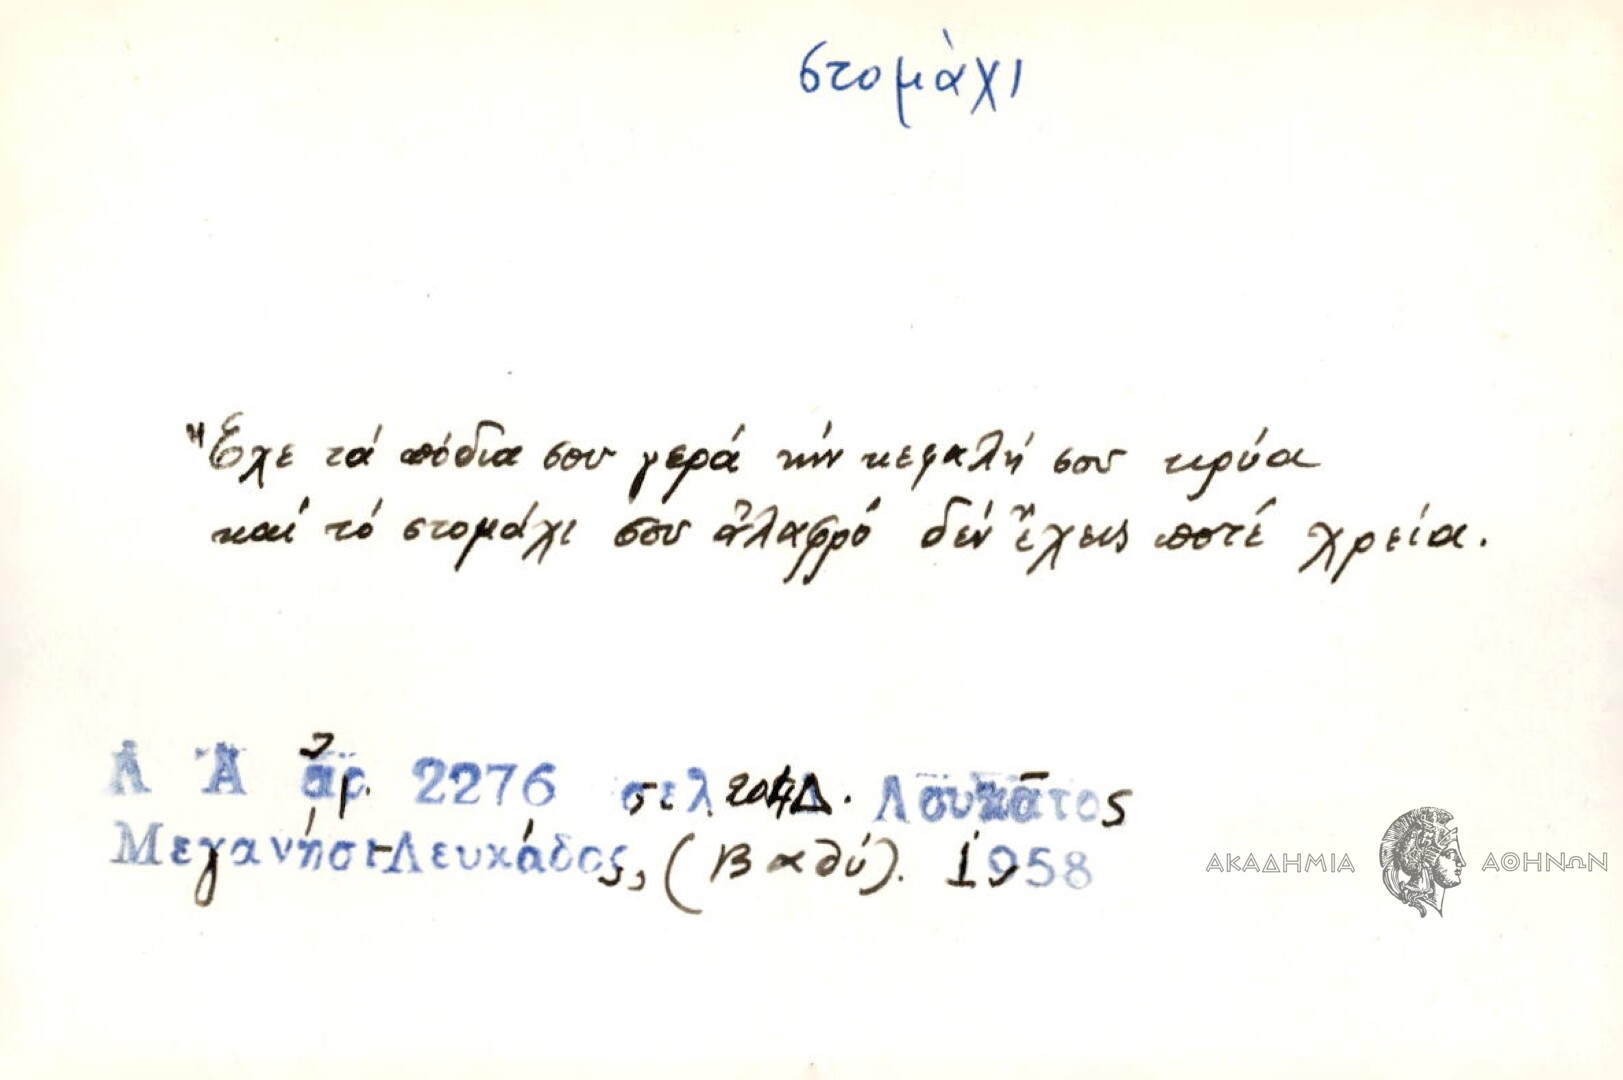 στομάχι
Ἔχε τά πόδια σου γερά τήν κεφαλή σου κρύα
καί τό στομάχι σου ἀλαφρό δέν ἔχεις ποτέ χρεία.
Λ Α ἀρ. 2276 σελ. Δ. Λουκᾶτος
Μεγανήσι-Λευκάδος, (Βαθύ). 1958
ΑΚΑΔΗΜΙΑ ΑΘΗΝΩΝ